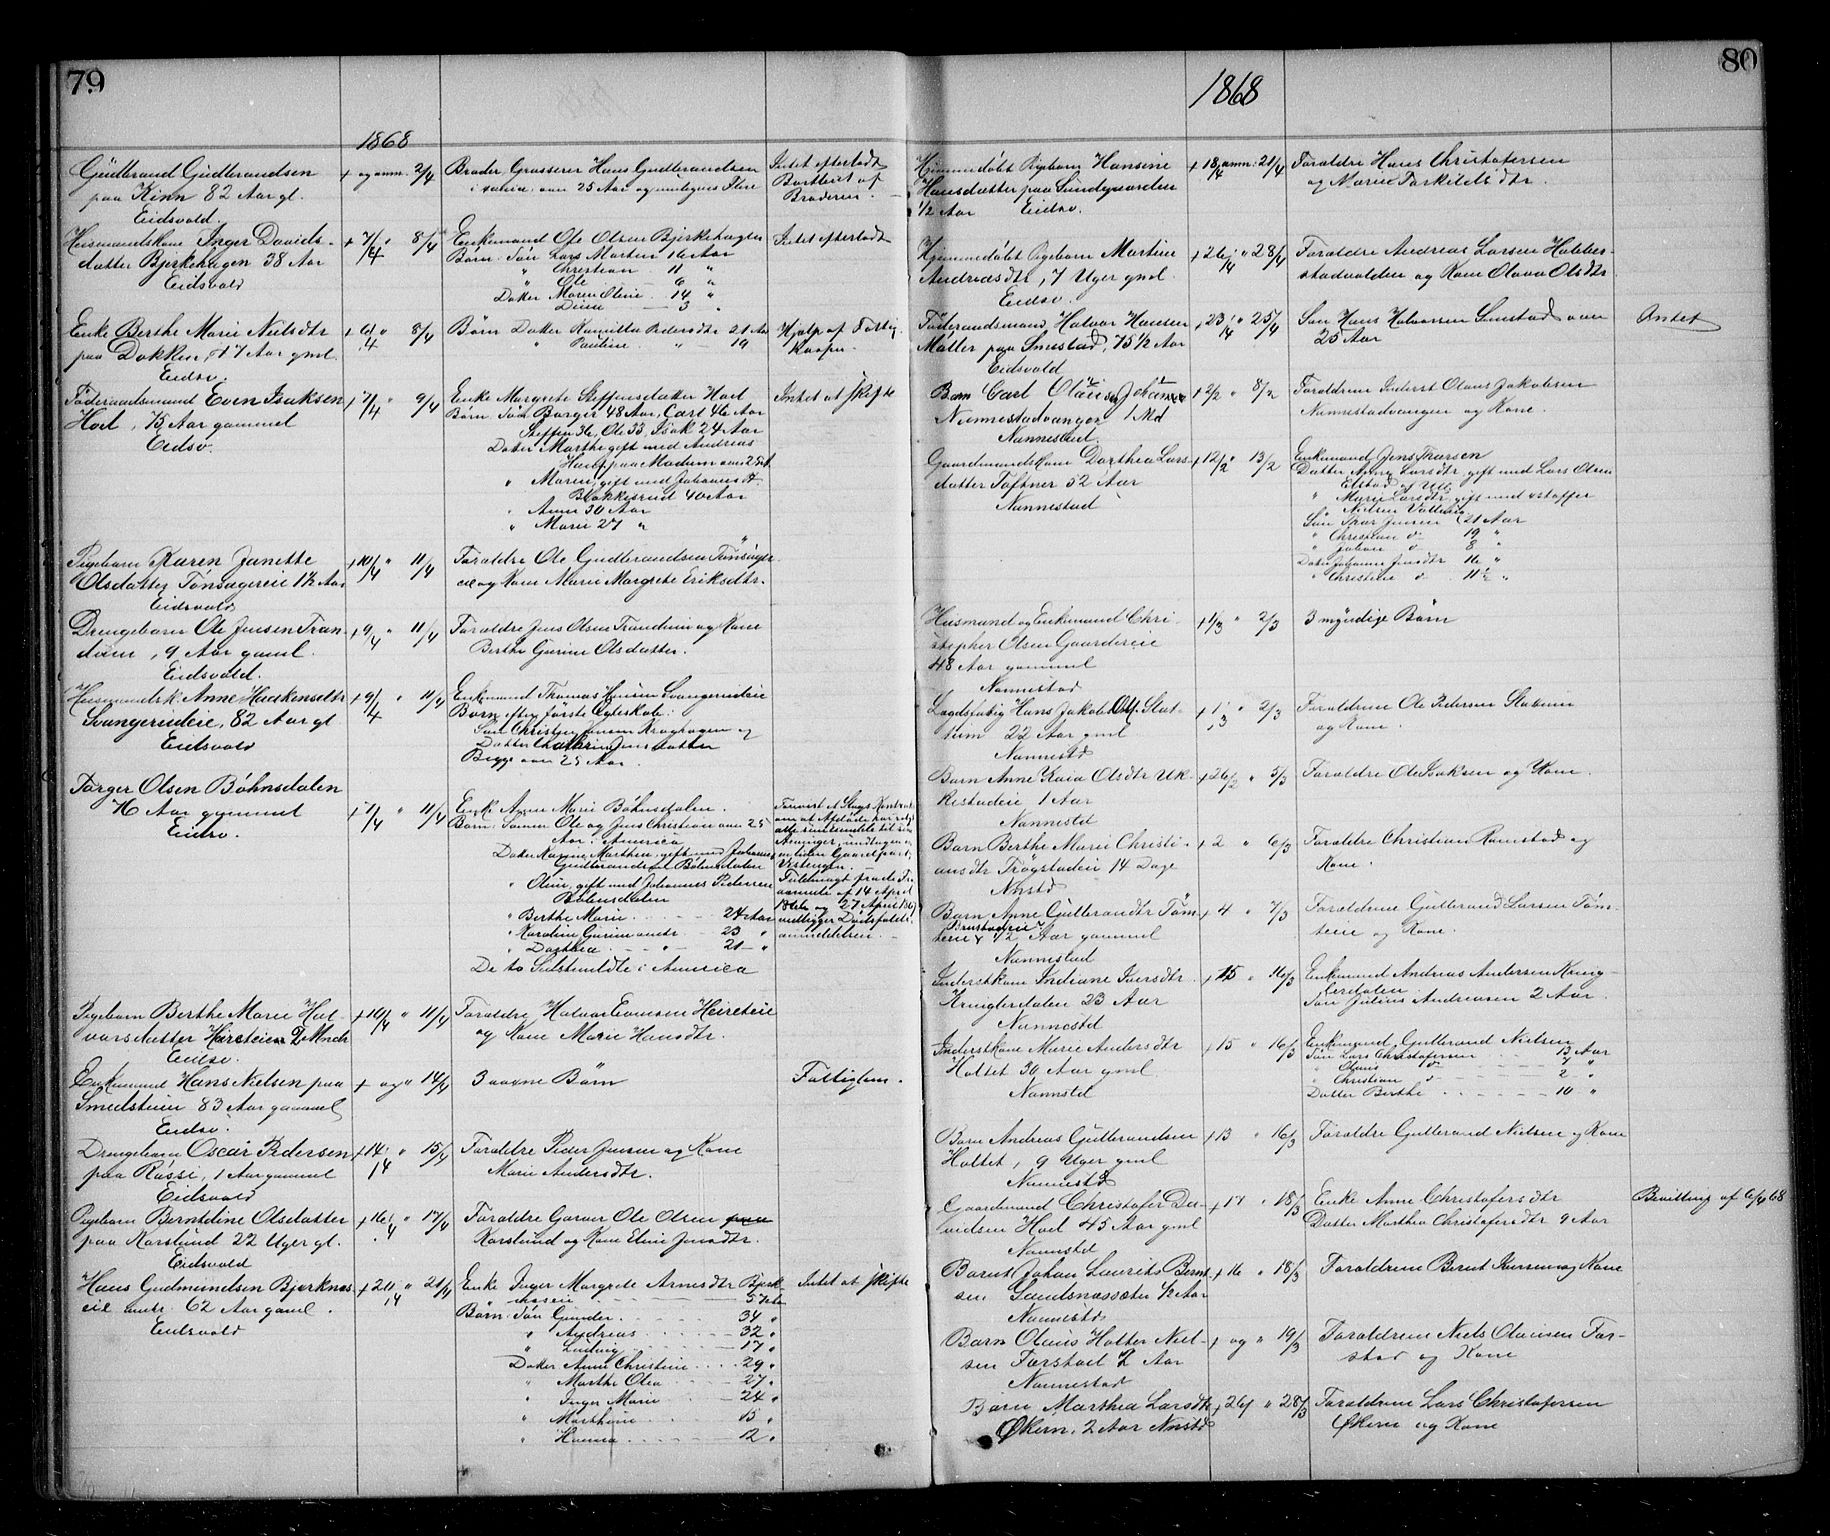 79
1868
Gudbrand Gudbrandsen
paa Kinn 82 Aar gl.
Eidsvold.
+ og anm. 2/4
Broder Grosserer Hans Gudbrandsen
over 25 Aar og muligens Flere
Intet efterladt
Broderen.
Husmandskone Inger Davids-
datter Bjerkehagen 38 Aar
Eidsvold
+ 7/4 " 8/4
Enkemand Ole Olsen Bjerkehagen
Børn: Søn Lars Martin 16 Aar
" Christian 11 "
" Ole 6 "
Datter Maren Oline 14 "
3 "
Intet efterladt
Enke Berthe Marie Nielsdtr
paa Dokken, 47 Aar gml.
Eidsv.
+ 6/4 " 8/4
Børn Datter Kamilla Pedersdtr 21 Aar
" Pauline " 19
Hjælp af Fattig-
kassen.
Føderaadsmand Even Isaksen
Hoel, 75 Aar gammel
Eidsv.
+ 7/4 9/4
Enke Margrete Steffensdatter Hoel
Børn: Søn Borger 48 Aar, Carl 46 Aar
Steffen 36, Ole 33, Isak 24 Aar
Datter Marthe gift med Andreas
paa Modum over 25 A
" Maren, gift med Johannes
Bakkerud 40 Aar
" Anne 30 Aar
" Marie 27 "
Intet at skifte
Pigebarn Karen Janette
Olsdatter Tønsagereie 1½ Aar
Eidsvold
+ 10/4 " 11/4
Forældre Ole Gudbrandsen Tønsager-
eie og Kone Marie Margrete Eriksdtr.
Drengebarn Ole Jensen Tran-
dum, 9 Aar gaml.
Eidsvold.
+ 9/4 " 11/4
Forældre Jens Olsen Trandum og Kone
Berthe Gurine Olsdatter.
Husmandsk. Anne Haakensdtr
Svangerudeie, 82 Aar gl
Eidsvold
+ 9/4 " 11/4
Enkemand Thomas Hansen Svangerudeie
Børn efter første Ægteskab:
Søn Christian Jensen Kraghagen og
Datter Cathrine Jensdatter
Begge over 25 Aar.
Torger Olsen Bøhnsdalen
76 Aar gammel
Eidsv.
+ 7/4 " 11/4
Enke Anne Marie Bøhnsdalen.
Børn: Sønner Ole og Jens Christian over 25
Aar i America
Datter Karine Marthea, gift med Johannes
Gudbrandsen Bøhnsdalen
" Oline, gift med Johannes Pedersen
Bøhnsdalen
" Berthe Marie 24 Aar
" Karoline Gurine 23 "
" Dorthea 21 "
De to Sidstmeldte i America
Fuldmagt fra de
14 April
27 April
vedligger Dødsfalds-
anmeldelsen.
Pigebarn Berthe Marie Hal-
vorsdatter Heieteien 2 Mndr
Eidsv.
+ 10/4 " 11/4
Forældre Halvor Evensen Heieteie
og Kone Marie Hansdtr.
Enkemand Hans Nielsen paa
Smedsteien 83 Aar gammel
Eidsv.
+ og " 14/4
3 voxne Børn
Fattiglem.
Drengebarn Oscar Pedersen
paa Rássi, 1 Aar gammel
Eidsvold
+ 14/4 " 15/4
Forældre Peder Jensen og Kone
Marie Andersdtr.
Pigebarn Berntdine Olsdatter
paa Korslund 22 Uger gl.
Eidsvold
+ 16/4 " 17/4
Forældre Garver Ole Olsen paa
Korslund og Kone Eline Jensdtr.
Hans Gudmundsen Bjerknes-
eie 62 Aar gaml.
Eidsvold
+ 20/4 " 21/4
Enke Inger Margrete Arnesdtr Bjerk-
neseie
Børn: Søn Gunder 34 "
" Andreas 32 "
" Ludvig 17 "
Datter Anne Christine 29 "
" Marthe Olea 27 "
" Inger Marie 24 "
" Marthine 15 "
" Hanna 12 "
Intet at skifte
80
1868
Hjemmedøbt Pigebarn Hansine
Hansdatter paa Sundgaarden
½ Aar Eidsv.
+ 18/4 anm: 21/4
Forældre Hans Christofersen
og Marie Torkilds dtr.
Hjemmedøbt Pigebarn Martine
Andreasdtr, 7 Uger gml.
Eidsv.
+ 26/4 " 28/4
Forældre Andreas Larsen
og Kone Olava Olsdtr
Føderaadsmand Halvor Hansen
Møller paa Smestad, 75½ Aar
Eidsvold
+ 23/4 " 25/4
Søn Hans Halvorsen Smestad over
25 Aar
Barn Carl Olaus Johansen
Nannestadvangen 1 Md
Nannestad.
+ 2/2 " 8/2
Forældrene Inderst Olaus Jakobsen
Nannestadvangen og Kone.
Gaardmandskone Dorthea Lars-
datter Toftner 52 Aar
Nannestad
+ 12/2 " 13/2
Enkemand Jens Thorsen
Datter Anne Larsdtr, gift med Lars Olsen
" Marie Larsdtr gift med Kristoffer
Nielsen
Søn Thor Jensen 21 Aar
" Christian do 19 "
" Johan do 8 "
Datter Johanne Jensdtr 16 "
" Christine do 11½ "
Husmand og Enkemand Chri-
stopher Olsen Gaardereie
48 Aar gammel
Nannestad
+ 1/3 " 2/3
3 myndige Børn
Lægdsfattig Hans Jakob Ols. Slat-
tum 22 Aar gml
Nannestd
+ 1/3 " 2/3
Forældrene Ole Pedersen Slattum
og Kone.
Barn Anne Kaia Olsdtr Uk-
kestadeie, 1 Aar
Nannestd
+ 26/2 " 5/3
Forældre Ole Isaksen og Kone.
Barn Berthe Marie Christi-
ansdtr Trøgstadeie 14 Dage
Nnstd
+ 2 " 6/3
Forældre Christian Ramstad og
Kone.
Barn Anne Gulbrandsdtr Tøm-
teeie ½ Aar gammel
Nannestad
+ 4 " 7/3
Forældrene Gulbrand Larsen Tøm-
teeie og Kone.
Inderstkone Indiane Iversdtr
Krøglerdalen 23 Aar
Nannestd
+ 15 " 16/3
Enkemand Andreas Andersen Krøg-
lerdalen.
Søn Julius Andreasen 2 Aar.
Inderstkone Marie Andersdtr
Holtet 30 Aar gml
Nannstd
+ 15 " 16/3
Enkemand Gulbrand Nielsen
Søn Lars Christofersen 13 Aar
" Olaus do 7 "
" Christian do 2 "
Datter Berthe 10 "
Barn Andreas Gulbrandsen
Holtet, 9 Uger gml
Nannestd
+ 13 " 16/3
Forældre Gulbrand Nielsen og Kone
Gaardmand Christofer Da-
vidsen Hoel 45 Aar gml
Nannstd
+ 17 " 18/3
Enke Anne Christofersdtr
Datter Marthea Christofersdtr 9 Aar
Bevilling af 6/4 68
Barnet Johan Laurits Bernt-
sen Sandsnessæter ½ Aar
Nannestd
+ 16 " 18/3
Forældrene Bernt Iversen og Kone
Barn Olaus Holter Niel-
sen Færstad 2 Aar
Nannestad
+ og " 19/3
Forældrene Niels Olausen Fær-
stad og Kone
Barn Marthea Larsdtr
Økern, 2 Aar Nnstd
+ 26 " 28/3
Forældrene Lars Christofersen
Økern og Kone